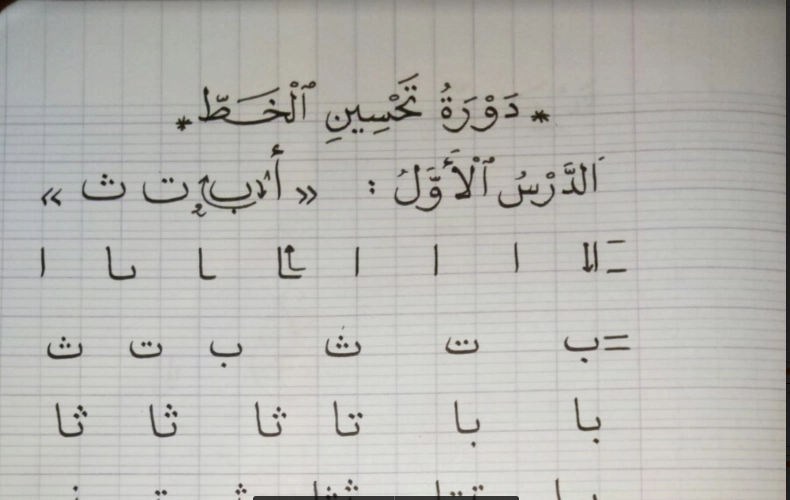 * دَوْرَةُ تَحْسِينِ ٱلْخَطّ *
اَلدَّرْسُ ٱلْأَوَّلُ : « أ ب ت ث »
= ا ا ا ا ـا ـا ـا ا
= ب ت ث ب ت ث
با با تا ثا ثا ثا